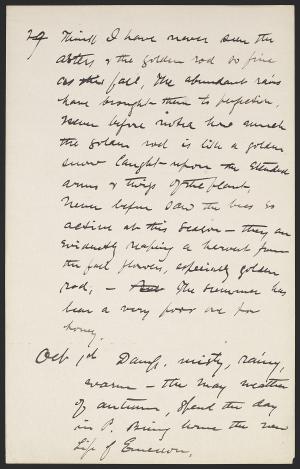 29 Think I have never seen the
asters & the golden rod so fine
as this fall, The abundant rains
have brought them to perfection,
Never before noted how much
the golden rod is like a golden
snow caught upon the extended
arms & twigs of the plant,
Never before saw the bees so
active at this season - they are
evidently reaping a harvest from
the fall flowers, especially golden
rod, - The summer has
been a very poor one for
honey.
Oct 1st Damp, misty, rainy,
warm - the May weather
of autumn, Spend the day
in P. Bring home the new
Life of Emerson,